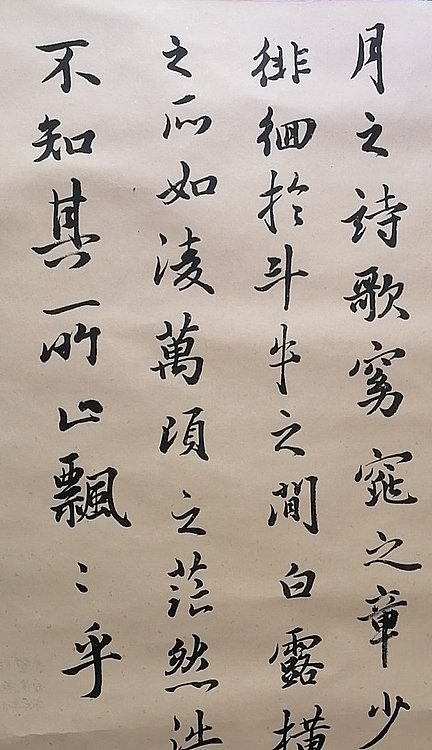 月之詩歌窈窕之章少
徘徊於斗牛之間白露橫
之所如淩萬頃之茫然浩
不知其所止飄〻乎